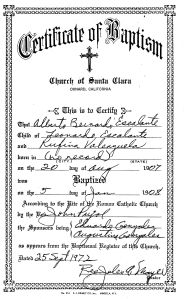 Certificate of Baptism
Church of Santa Clara
OXNARD, CALIFORNIA
This is to Certify
That Alberto Bernardo Escalante
Child of Leonardo Escalante
and Rufina Valenzuela
born in (No record)
(CITY) (STATE)
on the 20 day of Aug 1907
was Baptized
on the 5 day of Jan 1908
According to the Rite of the Roman Catholic Church
by the Rev. John Pujol
the Sponsors being Eduardo Gonzales
Augustina Gonzales
as appears from the Baptismal Register of this Church.
Dated 25 Sept 1972
Rev